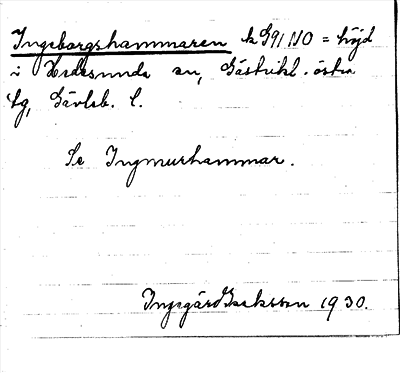 Ingeborgshammaren k G91 NO = höjd
i Hedesunda sn, Gästrikl. östra
tg, Gävleb. l.
Se Ingmurhammar.
Ingegärd Isaksson 1930.